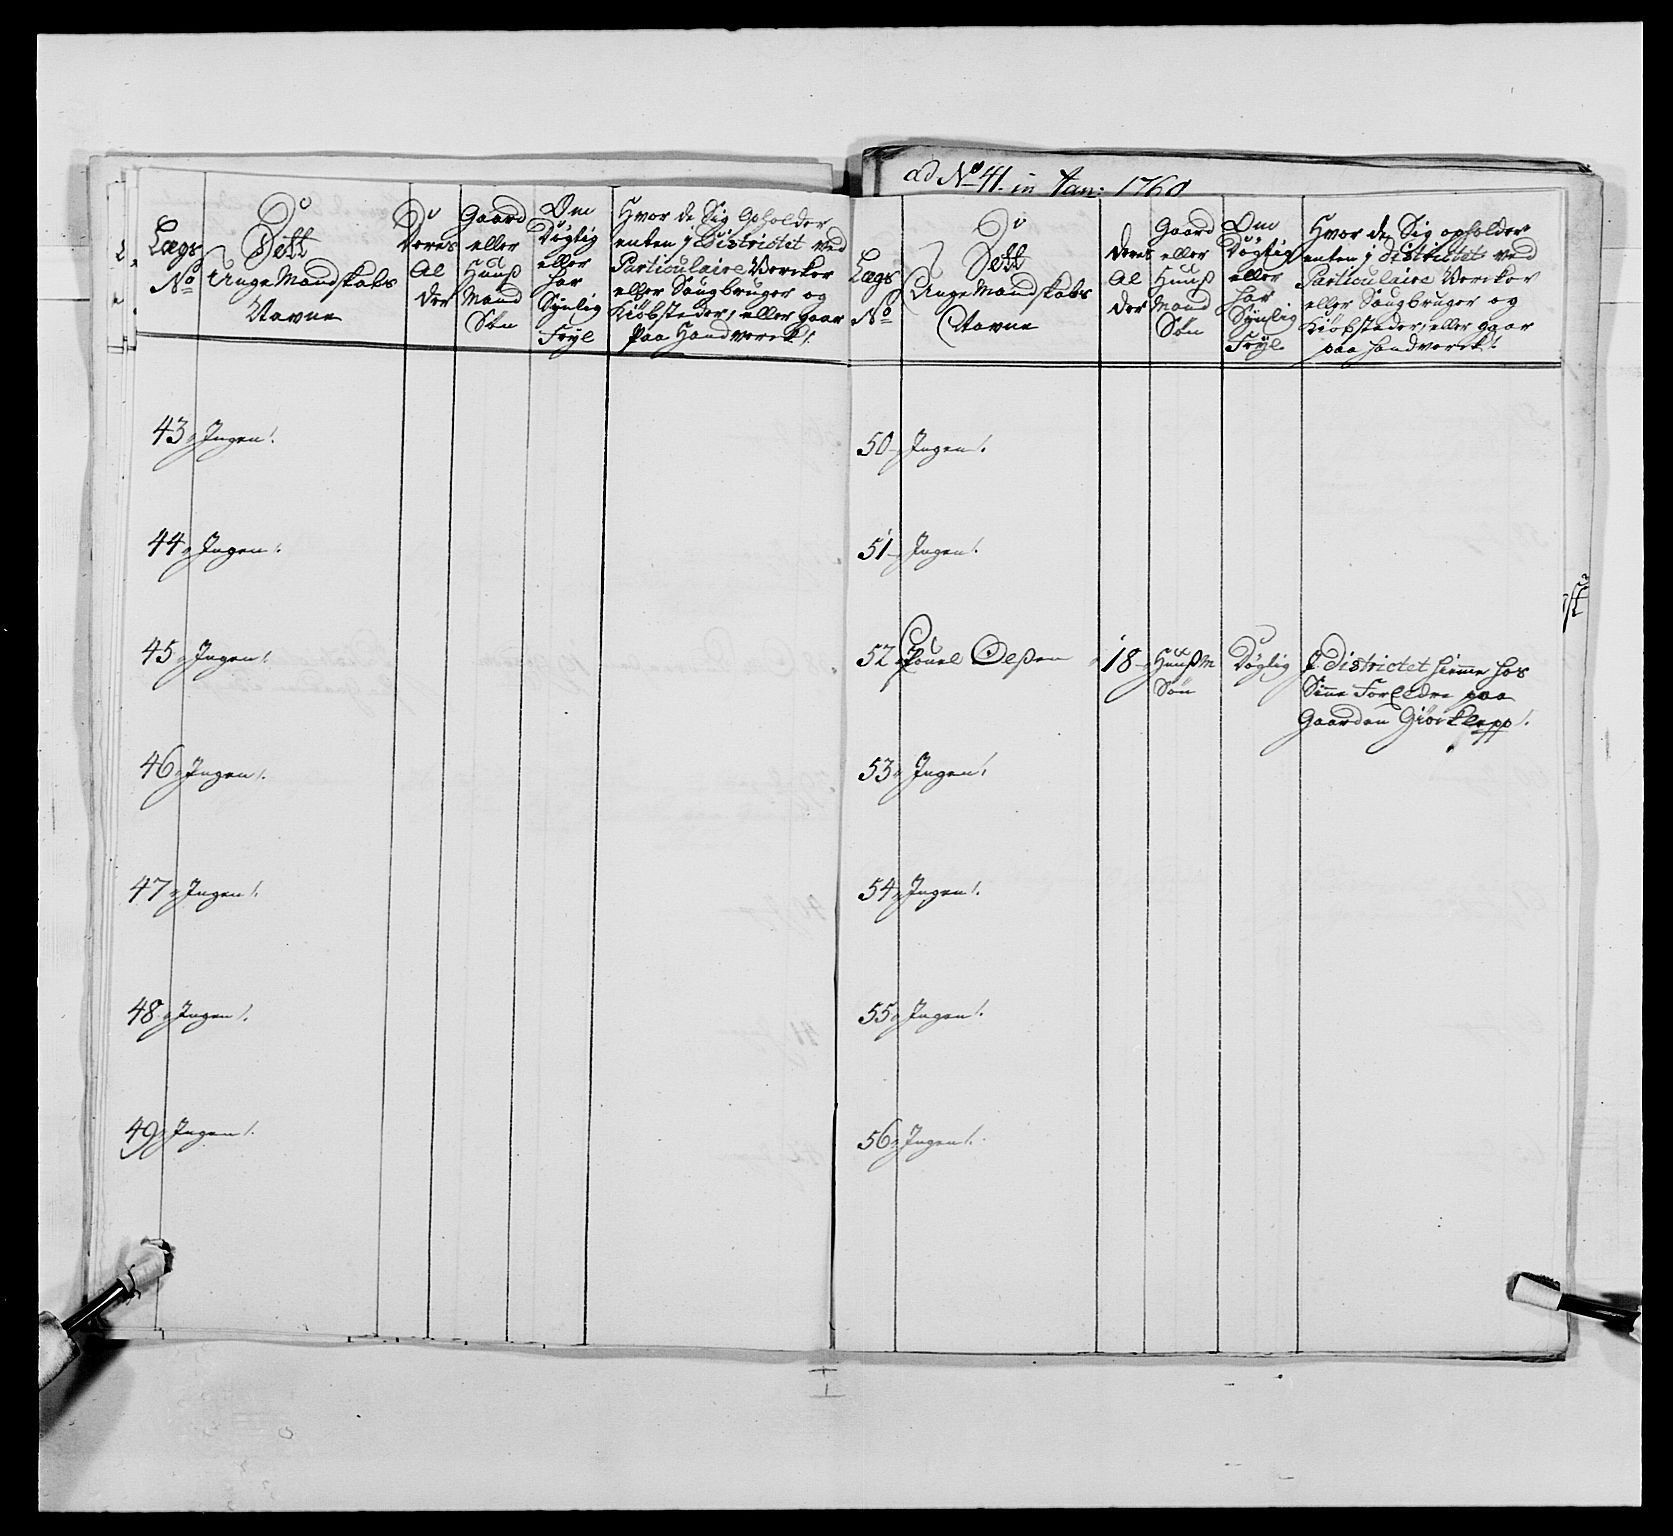 ad No 41. in Jan: 1760
Lægs
No
Dett
Unge Mandskabs
Navne
Deres
Al
der
Gaard
eller
Huuß
Mand
Søn
Om
Døgtig
eller
har
Synlig
Feyl
Hvor de Sig opholder
enten j Districtet ved
Particulaire Vercker
eller Saugbruger og
Kiøbsteder, eller gaar
paa Handverck /.
43, Ingen /.
44, Ingen /.
45, Ingen /.
46, Ingen /.
47, Ingen /.
48, Ingen /.
49, Ingen /.
Lægs
No
Dett
Unge Mandskabs
Navne
Deres
Al
der
Gaard
eller
Huuß
Mand
Søn
Om
Døgtig
eller
har
Synlig
Feyl
Hvor de Sig opholder
enten j Districtet ved
Particulaire Vercker
eller Saugbruger og
Kiøbsteder, eller gaar
paa Handverck /.
50, Ingen /.
51, Ingen /.
52, Povel Olßen 18, Huußm Døgtig J Districtet hiemme hos
Søn Sinne Foreldre paa
Gaarden /.
53, Ingen /.
54, Ingen /.
55, Ingen /.
56, Ingen /.